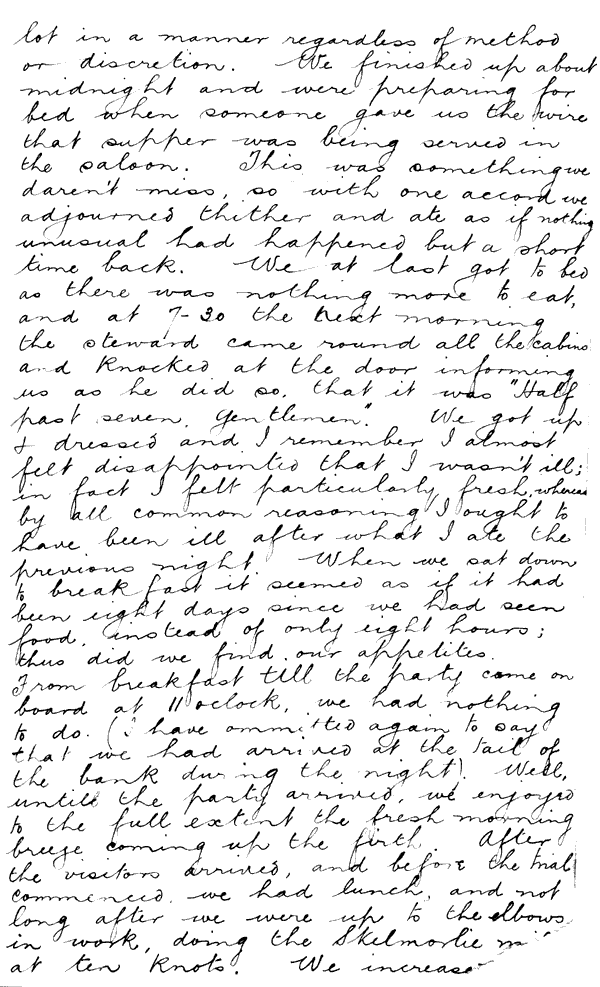 lot in a manner regardless of method
or discretion. We finished up about
midnight and were preparing for
bed when someone gave us the wire
that supper was being served in
the saloon. This was something we
daren't miss, so with one accord we
adjourned thither and ate as if nothing
unusual had happened but a short
time back. We at last got to bed
as there was nothing more to eat,
and at 7-30 the next morning
the steward came round all the cabins
and knocked at the door informing
us as he did so, that it was "Half
past seven, Gentlemen". We got up
& dressed and I remember I almost
felt disappointed that I wasn't ill;
in fact I felt particularly fresh, whereas
by all common reasoning I ought to
have been ill after what I ate the
previous night. When we sat down
to breakfast it seemed as if it had
been eight days since we had seen
food, instead of only eight hours;
thus did we find our appetites.
From breakfast till the party came on
board at 11 oclock, we had nothing
to do. (I have ommitted again to say
that we had arrived at the tail of
the bank during the night). Well,
untill the party arrived, we enjoyed
to the full extent the fresh morning
breeze coming up the firth. After
the visitors arrived, and before the trial
commenced, we had lunch, and not
long after we were up to the elbows
in work, doing the Skelmorlie
at ten knots. We increase